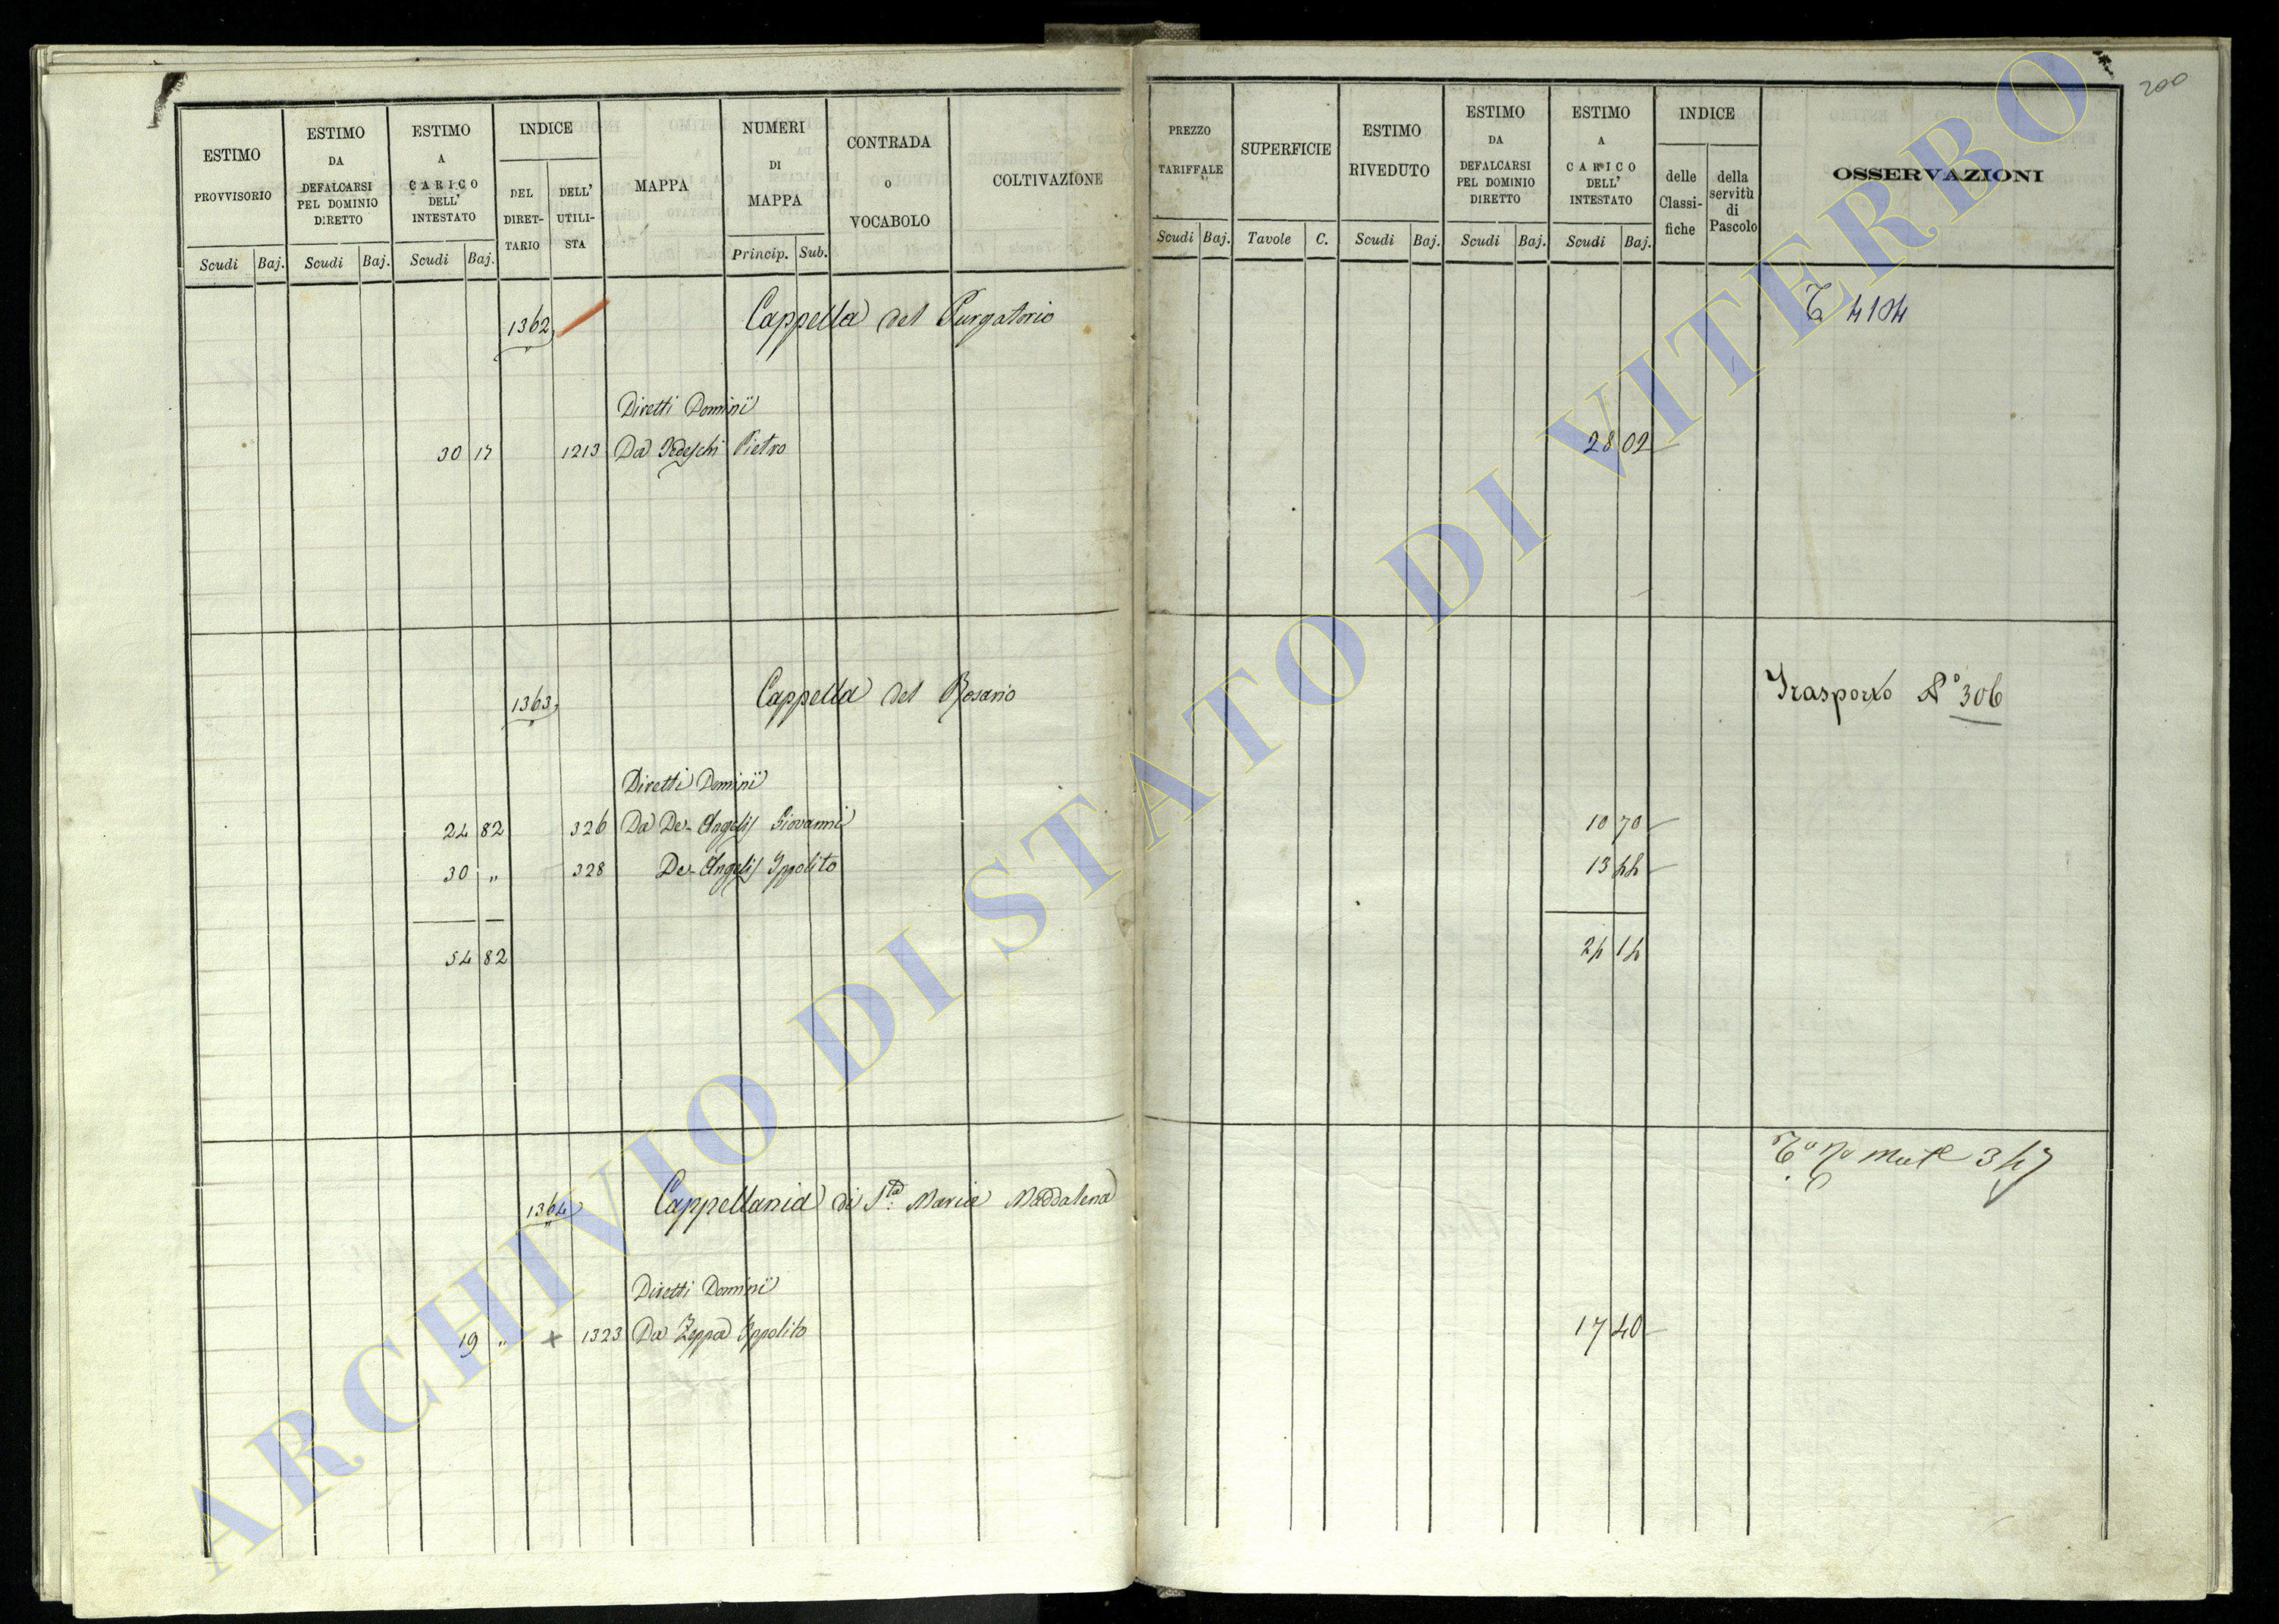 200
ESTIMO PROVVISORIO
Scudi Baj.
ESTIMO DA DEFALCARSI PEL DOMINIO DIRETTO
Scudi Baj.
ESTIMO A CARICO DELL' INTESTATO
Scudi Baj.
INDICE
DEL DIRETTARIO
DELL' UTILISTA
MAPPA
NUMERI DI MAPPA
Princip. Sub.
CONTRADA O VOCABOLO
COLTIVAZIONE
PREZZO TARIFFALE
Scudi Baj.
SUPERFICIE
Tavole C.
ESTIMO RIVEDUTO
Scudi Baj.
ESTIMO DA DEFALCARSI PEL DOMINIO DIRETTO
Scudi Baj.
ESTIMO A CARICO DELL' INTESTATO
Scudi Baj.
INDICE
delle Classifiche
della servitù di Pascolo
OSSERVAZIONI
1362 Cappella del Purgatorio T 4104
Diretti Dominii
30 17 1213 Da Tedeschi Pietro 28 02
1363 Cappella del Rosario Trasporto N° 306
Diretti Dominii
24 82 326 Da De-Angelis Giovanni 10 70
30 " 328 De-Angelis Ippolito 13 44
54 82 24 14
1364 Cappellania di Sta Maria Maddalena 347
Diretti Dominii
19 " x 1323 Da Zeppa Ippolito 17 40
ARCHIVIO DI STATO DI VITERBO